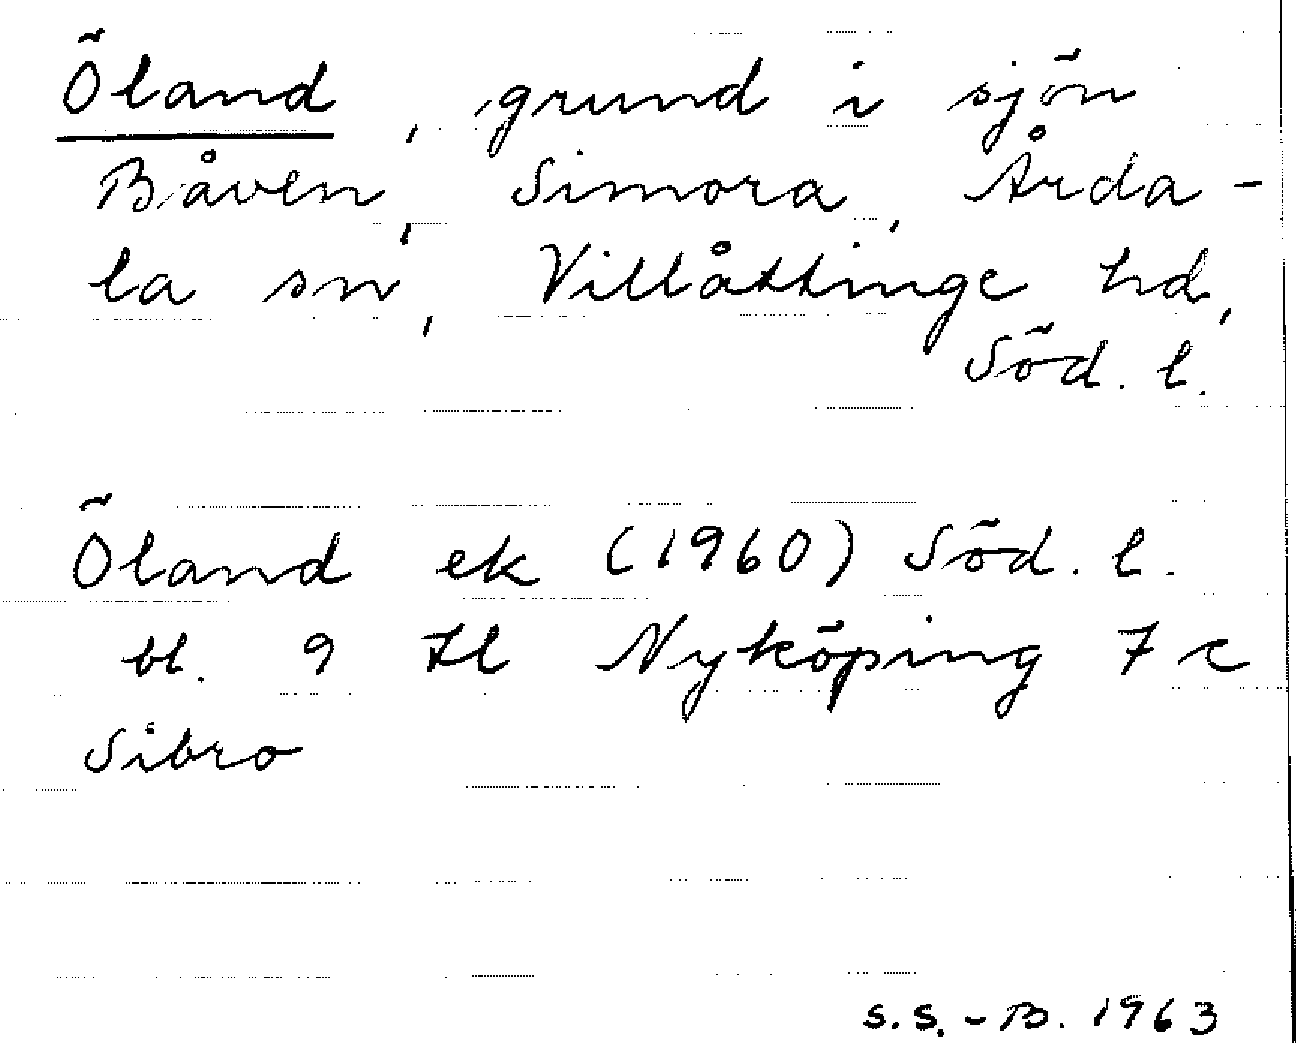 Öland, grund i sjön
Båven, Simora, Årda-
la sn, Villåttinge hd,
Söd. l.
Öland ek (1960) Söd. l.
bl. 9 Hl Nyköping 7 c
Sibro
S.S.-B. 1963